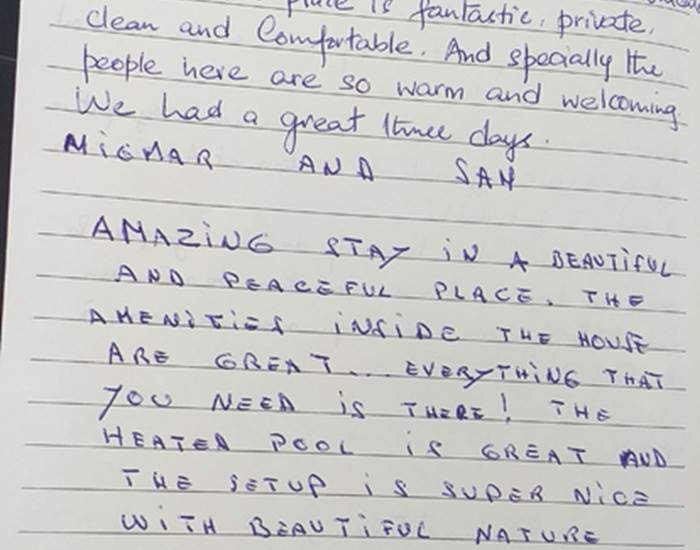 place is fantastic, private,
clean and Comfortable. And specially the
people here are so warm and welcoming
We had a great three days.
MiGMAR AND SAM
AMAZiNG STAY iN A BEAUTiFUL
AND PEACEFUL PLACE. THE
AMENiTiES iNSiDE THE HOUSE
ARE GREAT... EVERYTHiNG THAT
YOU NEED iS THERE! THE
HEATED POOL iS GREAT AND
THE SETUP iS SUPER NiCE
WiTH BEAUTiFUL NATURE